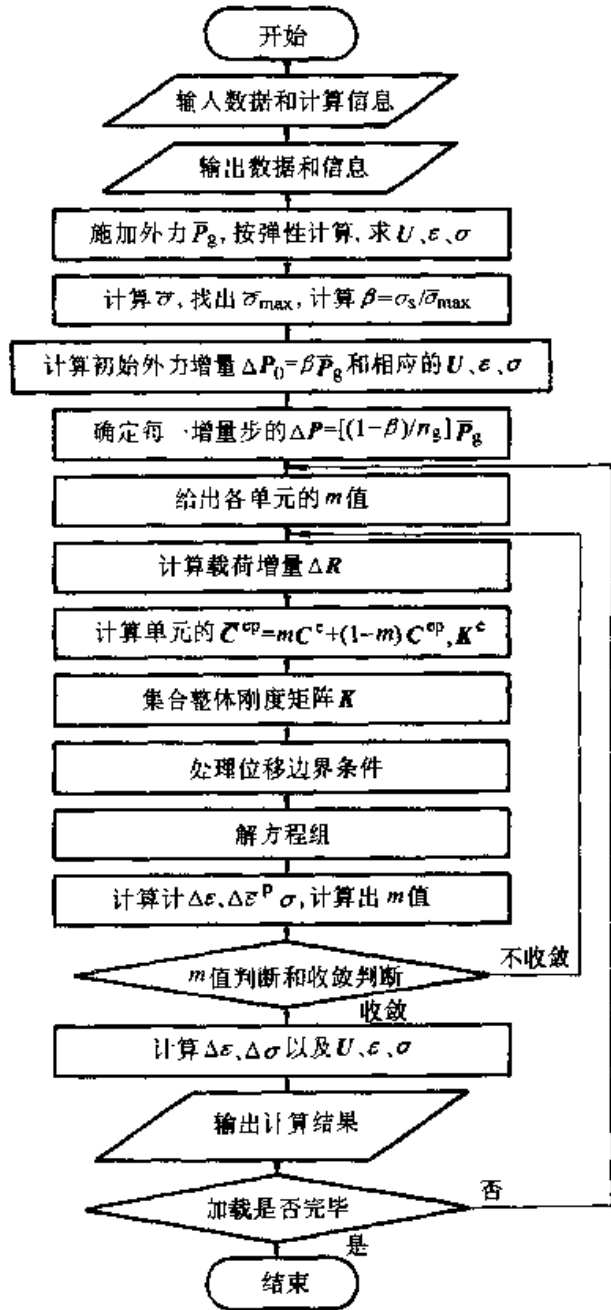 开始
输入数据和计算信息
输出数据和信息
施加外力 P̄g, 按弹性计算, 求 U、ε、σ
计算 σ̄, 找出 σ̄max, 计算 β=σs/σ̄max
计算初始外力增量 ΔP0=βP̄g 和相应的 U、ε、σ
确定每一增量步的 ΔP=[(1-β)/ng] P̄g
给出各单元的 m 值
计算载荷增量 ΔR
计算单元的 C̄ep=mCe+(1-m) Cep, Ke
集合整体刚度矩阵 K
处理位移边界条件
解方程组
计算计 Δε、Δε̄p σ, 计算出 m 值
m 值判断和收敛判断
不收敛
收敛
计算 Δε、Δσ 以及 U、ε、σ
输出计算结果
加载是否完毕
否
是
结束